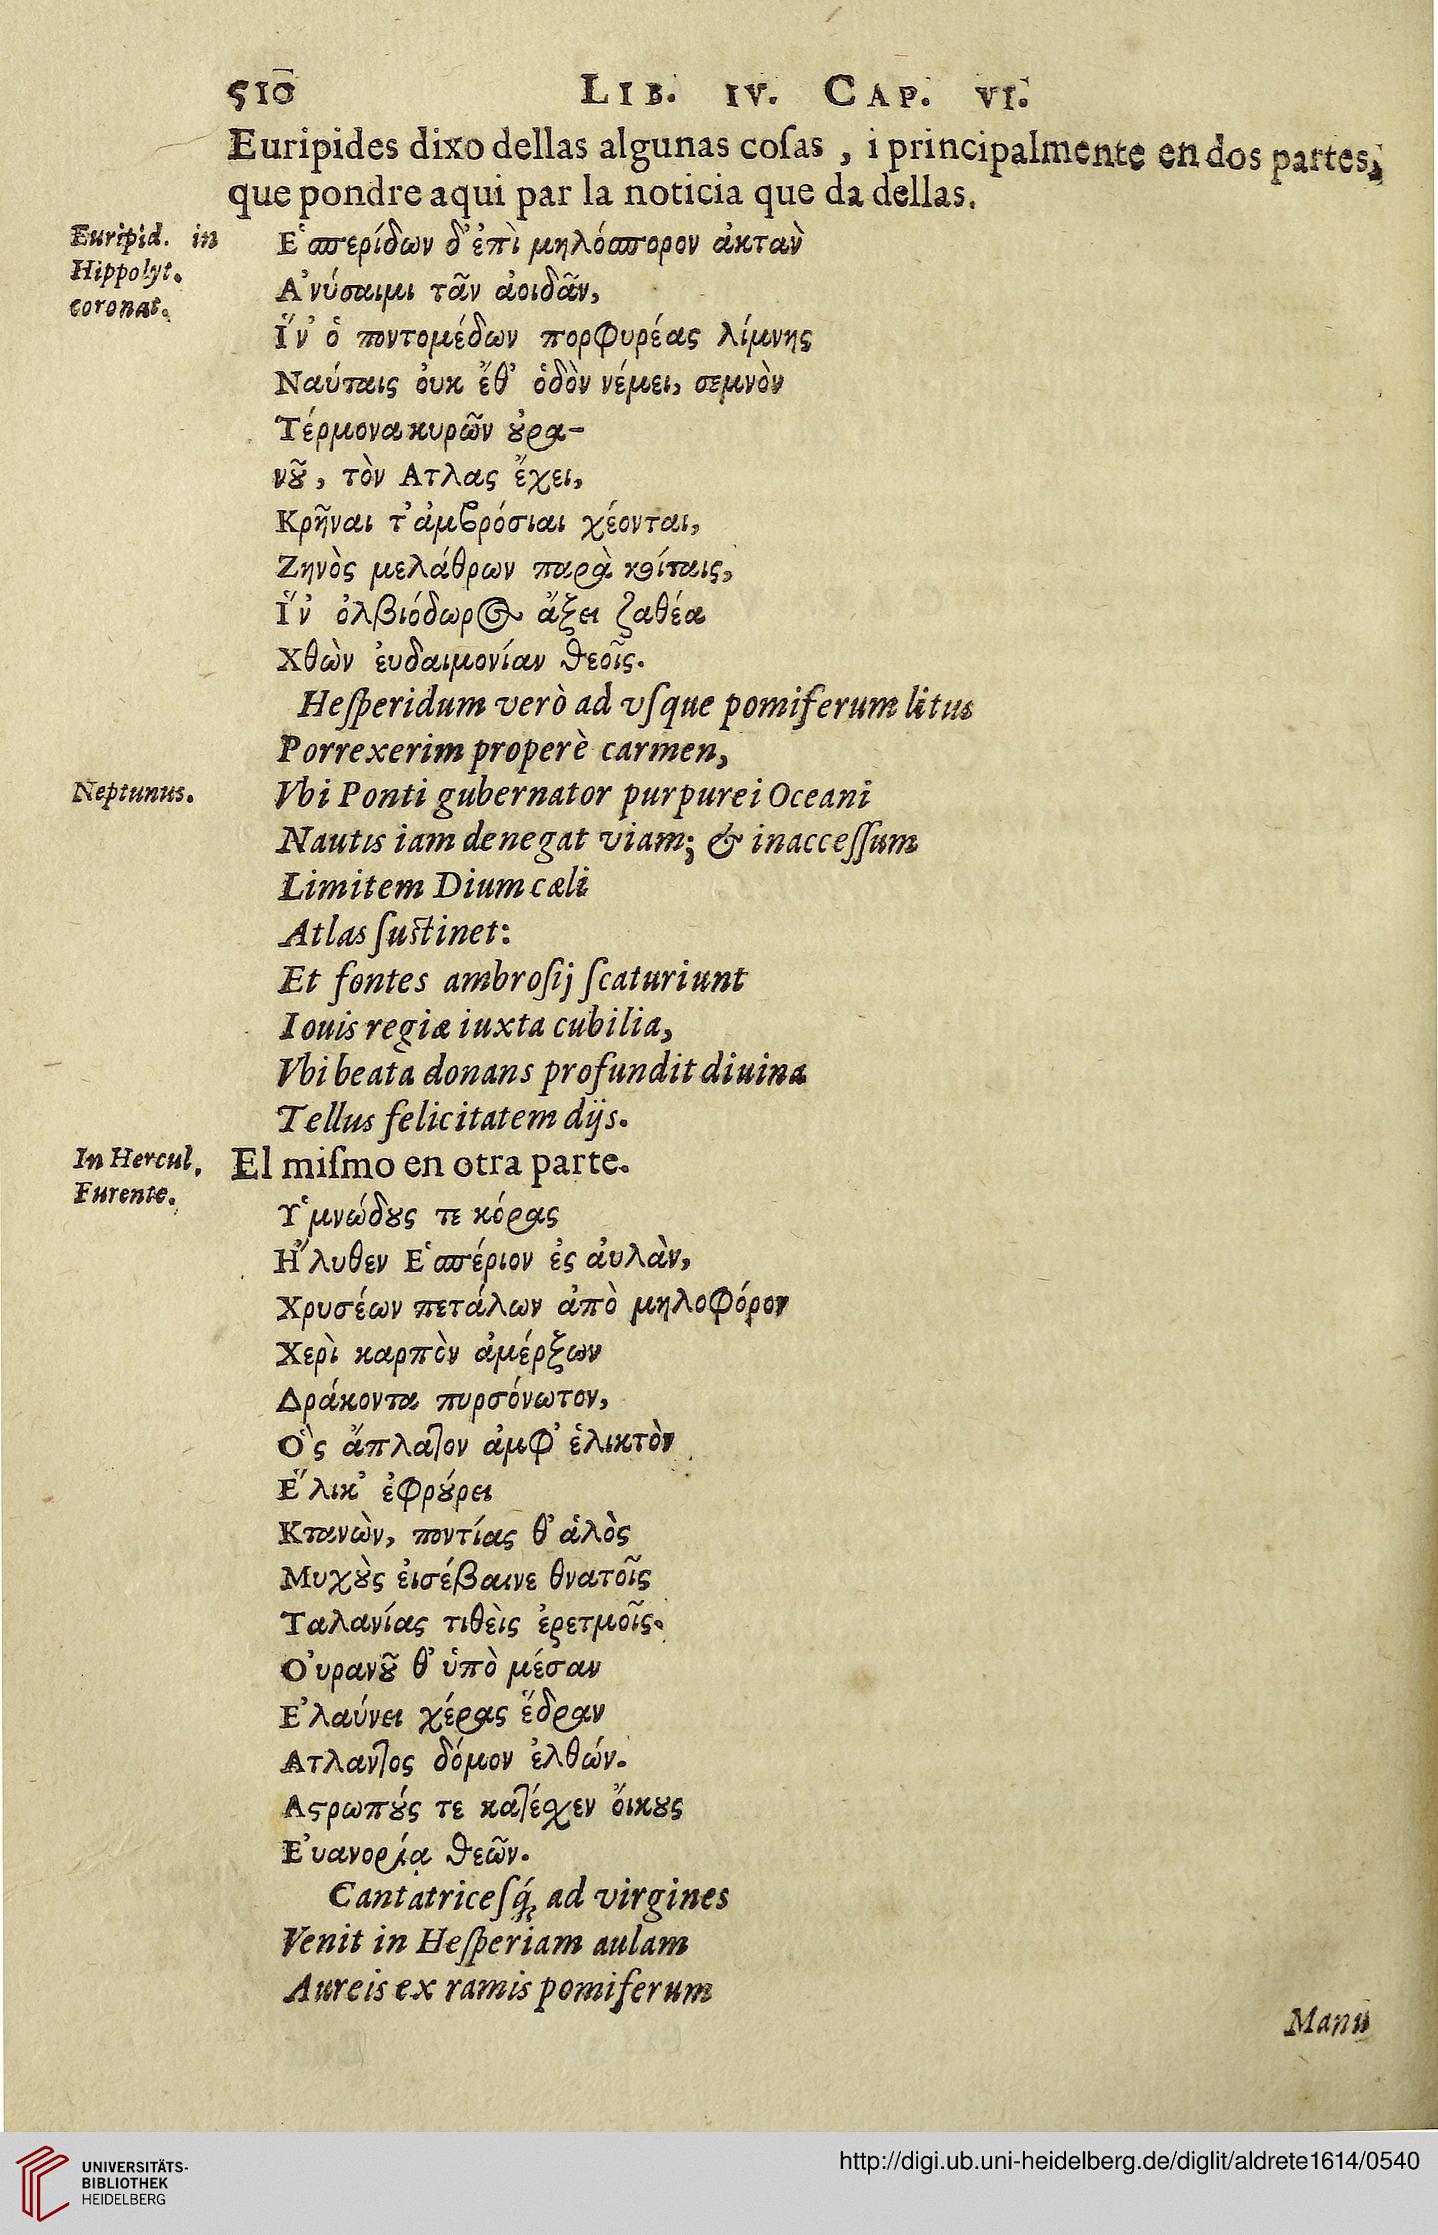 510 LIB. IV. CAP. VI.
Euripides dixo dellas algunas coſas , i principalmente en dos partes,
que pondre aqui par la noticia que da dellas.
Euripid. in
Hippolyt.
coronat.
Ε῾σπερίδων δ᾽ἐπὶ μηλόσπορον ἀκτὰν
Α᾽νύσαιμι τᾶν ἀοιδᾶν,
Ἵν᾽ ὁ ποντομέδων πορφυρέας λίμνης
Ναύταις ὀυκ ἔθ᾽ ὁδὸν νέμει, σεμνὸν
Τέρμονα κυρῶν ȣ̓ρα-
νȣ͂, τὸν Ατλας ἔχει,
Κρῆναι τ᾽ἀμϐρόσιαι χέονται,
Ζηνὸς μελάθρων παρὰ κοίταις,
Ἵν᾽ ὀλβιόδωρος ἄξει ζαθέα
Χθὼν ἐυδαιμονίαν θεοῖς.
Heſperidum verò ad vſque pomiferum litus
Porrexerim properè carmen,
Neptunus.
Vbi Ponti gubernator purpurei Oceani
Nautis iam denegat viam; & inacceſſum
Limitem Dium cæli
Atlas ſustinet:
Et fontes ambroſij ſcaturiunt
Iouis regiæ iuxta cubilia,
Vbi beata donans profundit diuina
Tellus felicitatem dijs.
In Hercul.
Furente.
El miſmo en otra parte.
Υ῾μνώδȣς τε κόρας
Η῎λυθεν Ε῾σπέριον ἐς ἀυλὰν,
Χρυσέων πετάλων ἀπὸ μηλοφόρον
Χερὶ καρπὸν ἀμέρξων
Δράκοντα πυρσόνωτον,
Ο῝ς ἄπλατον ἀμφ᾽ ἑλικτὸν
Ε῞λικ᾽ ἐφρȣ́ρει
Κτανὼν, ποντίας θ᾽ ἁλὸς
Μυχȣ̀ς ἐισέβαινε θνατοῖς
Ταλανίας τιθὲις ἐρετμοῖς.
Ο᾽υρανȣ͂ θ᾽ ὑπὸ μέσαν
Ε᾽λαύνει χέρας ἕδραν
Ατλαντος δόμον ἐλθών.
Αϛρωπȣ́ς τε κατέχεν ὄικȣς
Ε᾽υανορίᾳ θεῶν.
Cantatriceſq́; ad virgines
Venit in Heſperiam aulam
Aureis ex ramis pomiferum
Manu
UNIVERSITÄTS-
BIBLIOTHEK
HEIDELBERG
http://digi.ub.uni-heidelberg.de/diglit/aldrete1614/0540